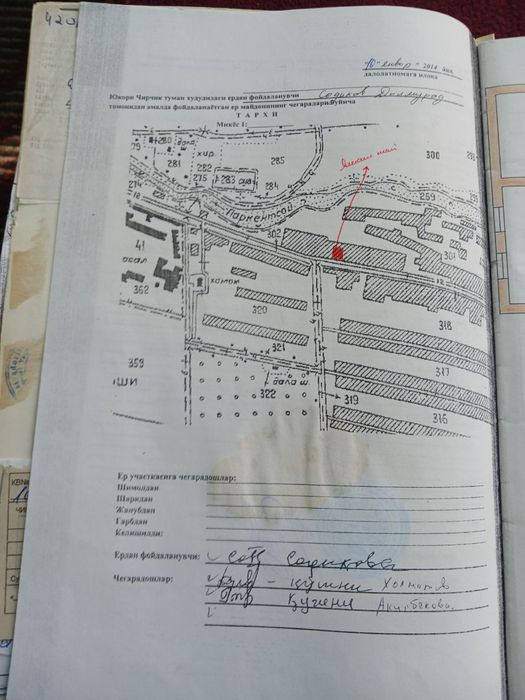 420
"10" январ 2014 йил
далолатномага илова
Юкори Чирчик туман худудидаги ердан фойдаланувчи Содиков Дилмурод
томонидан амалда фойдаланаётган ер майдонининг чегаралари буйича
Т А Р Х И
Микёс 1:
79 280 дала ш.
281 хир. 285 300
282
275 283 284
274 Паркентсой 259
12 302
41 301
асал 12
362 хамож
320 318
321
359 317
ШИ дала ш.
322 319 316
Ер участкасига чегарадошлар:
Шимолдан
Шаркдан
Жанубдан
Гарбдан
Келишилди:
Ердан фойдаланувчи: Содикова
Чегарадошлар: - қўшни Холматов
Қўшни Акилбекова